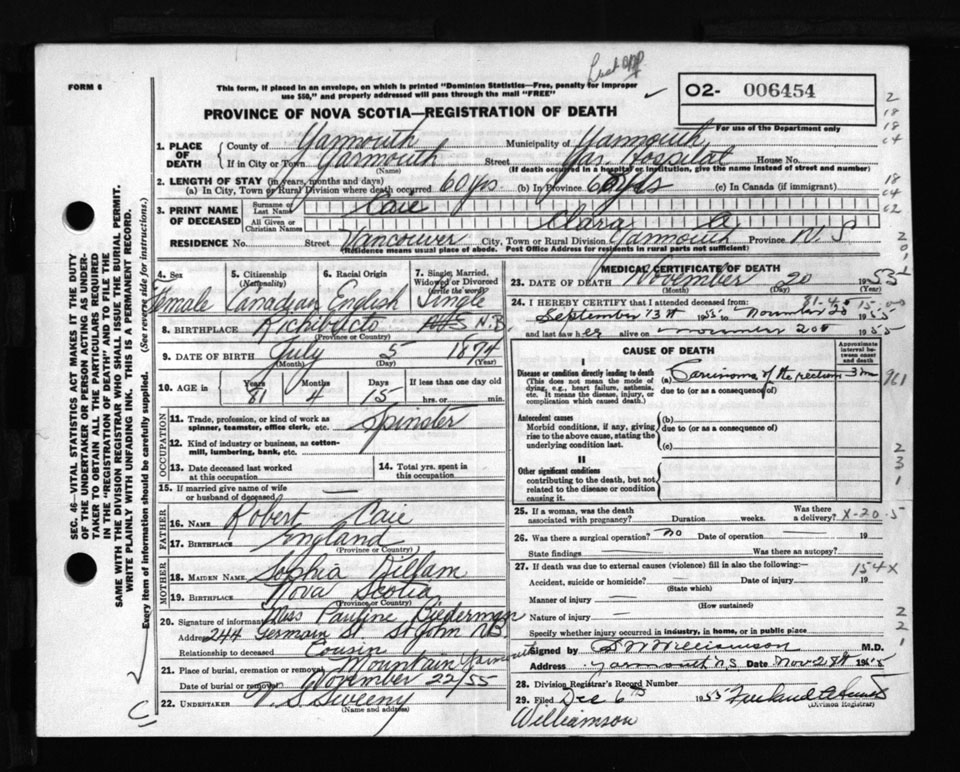 FORM 6
This form, if placed in an envelope, on which is printed "Dominion Statistics—Free, penalty for improper
use $50," and properly addressed will pass through the mail "FREE"
O2- 006454
For use of the Department only
PROVINCE OF NOVA SCOTIA—REGISTRATION OF DEATH
1. PLACE OF DEATH
County of Yarmouth Municipality of Yarmouth
If in City or Town Yarmouth Street Yar. Hospital House No.
(Name) (If death occurred in a hospital or institution, give the name instead of street and number)
2. LENGTH OF STAY (in years, months and days)
(a) In City, Town or Rural Division where death occurred 60 yrs. (b) In Province 60 yrs (c) In Canada (if immigrant)
3. PRINT NAME OF DECEASED
Surname or Last Name Caie
All Given or Christian Names Clara A
RESIDENCE No. Street Vancouver City, Town or Rural Division Yarmouth Province N.S
(Residence means usual place of abode. Post Office Address for residents in rural parts not sufficient)
4. Sex Female
5. Citizenship (Nationality) Canadian
6. Racial Origin English
7. Single, Married, Widowed or Divorced (write the word) Single
8. BIRTHPLACE Richibucto N.B.
(Province or Country)
9. DATE OF BIRTH July 5 1874
(Month) (Day) (Year)
10. AGE in Years 81 Months 4 Days 15 If less than one day old
hrs. or min.
OCCUPATION
11. Trade, profession, or kind of work as spinner, teamster, office clerk, etc. Spinster
12. Kind of industry or business, as cotton-mill, lumbering, bank, etc.
13. Date deceased last worked at this occupation
14. Total yrs. spent in this occupation
15. If married give name of wife or husband of deceased —
FATHER
16. NAME Robert Caie
17. BIRTHPLACE England
(Province or Country)
MOTHER
18. MAIDEN NAME Sophia
19. BIRTHPLACE Nova Scotia
(Province or Country)
20. Signature of informant Miss Pauline Biederman
Address 244 Germain St. St John NB
Relationship to deceased Cousin
21. Place of burial, cremation or removal Mountain
Date of burial or removal November 22/55
22. UNDERTAKER V. S. Sweeny
(Name and address)
MEDICAL CERTIFICATE OF DEATH
23. DATE OF DEATH November 20 1955
(Day) (Year)
24. I HEREBY CERTIFY that I attended deceased from: 81-4-15
September 13th 1955 to November 20 1955
and last saw her alive on November 20th 1955
CAUSE OF DEATH
Approximate interval between onset and death
I
Disease or condition directly leading to death (a) Carcinoma of the rectum 3 m
(This does not mean the mode of dying, e.g., heart failure, asthenia, etc. It means the disease, injury, or complication which caused death.)
due to (or as a consequence of)
Antecedent causes (b)
Morbid conditions, if any, giving rise to the above cause, stating the underlying condition last.
due to (or as a consequence of)
(c)
II
Other significant conditions contributing to the death, but not related to the disease or condition causing it.
25. If a woman, was the death associated with pregnancy? Duration weeks. Was there a delivery? X-20-5
26. Was there a surgical operation? no Date of operation 19
State findings Was there an autopsy?
27. If death was due to external causes (violence) fill in also the following:— 154X
Accident, suicide or homicide? — Date of injury 19
(State which)
Manner of injury —
(How sustained)
Nature of injury —
Specify whether injury occurred in industry, in home, or in public place
Signed by Williamson M.D.
Address Yarmouth NS Date Nov 1955
28. Division Registrar's Record Number
29. Filed Dec 6th 1955
(Division Registrar)
Williamson
SEC. 46—VITAL STATISTICS ACT MAKES IT THE DUTY
OF THE UNDERTAKER OR PERSON ACTING AS UNDER-
TAKER TO OBTAIN ALL THE PARTICULARS REQUIRED
IN THE "REGISTRATION OF DEATH" AND TO FILE THE
SAME WITH THE DIVISION REGISTRAR WHO SHALL ISSUE THE BURIAL PERMIT.
WRITE PLAINLY WITH UNFADING INK. THIS IS A PERMANENT RECORD.
Every item of information should be carefully supplied. (See reverse side for instructions.)
C